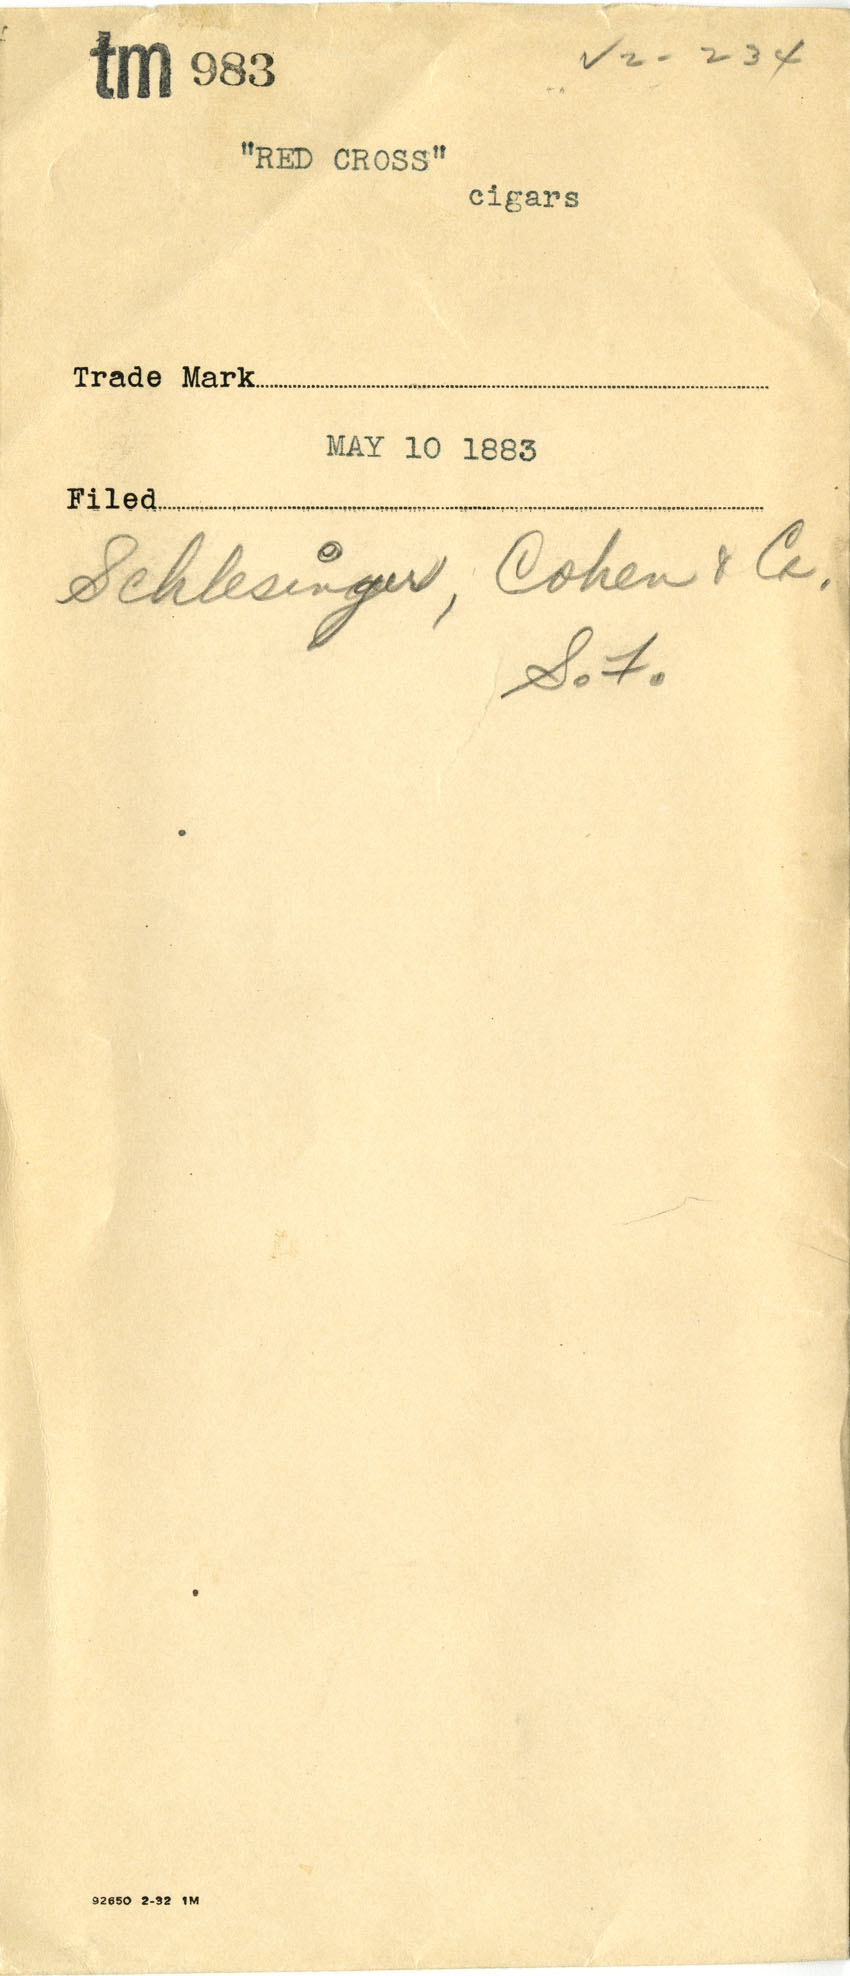 tm 983
√2-234
"RED CROSS"
cigars
Trade Mark
MAY 10 1883
Filed
Schlesinger, Cohen & Co.
S.F.
92650 2-32 1M